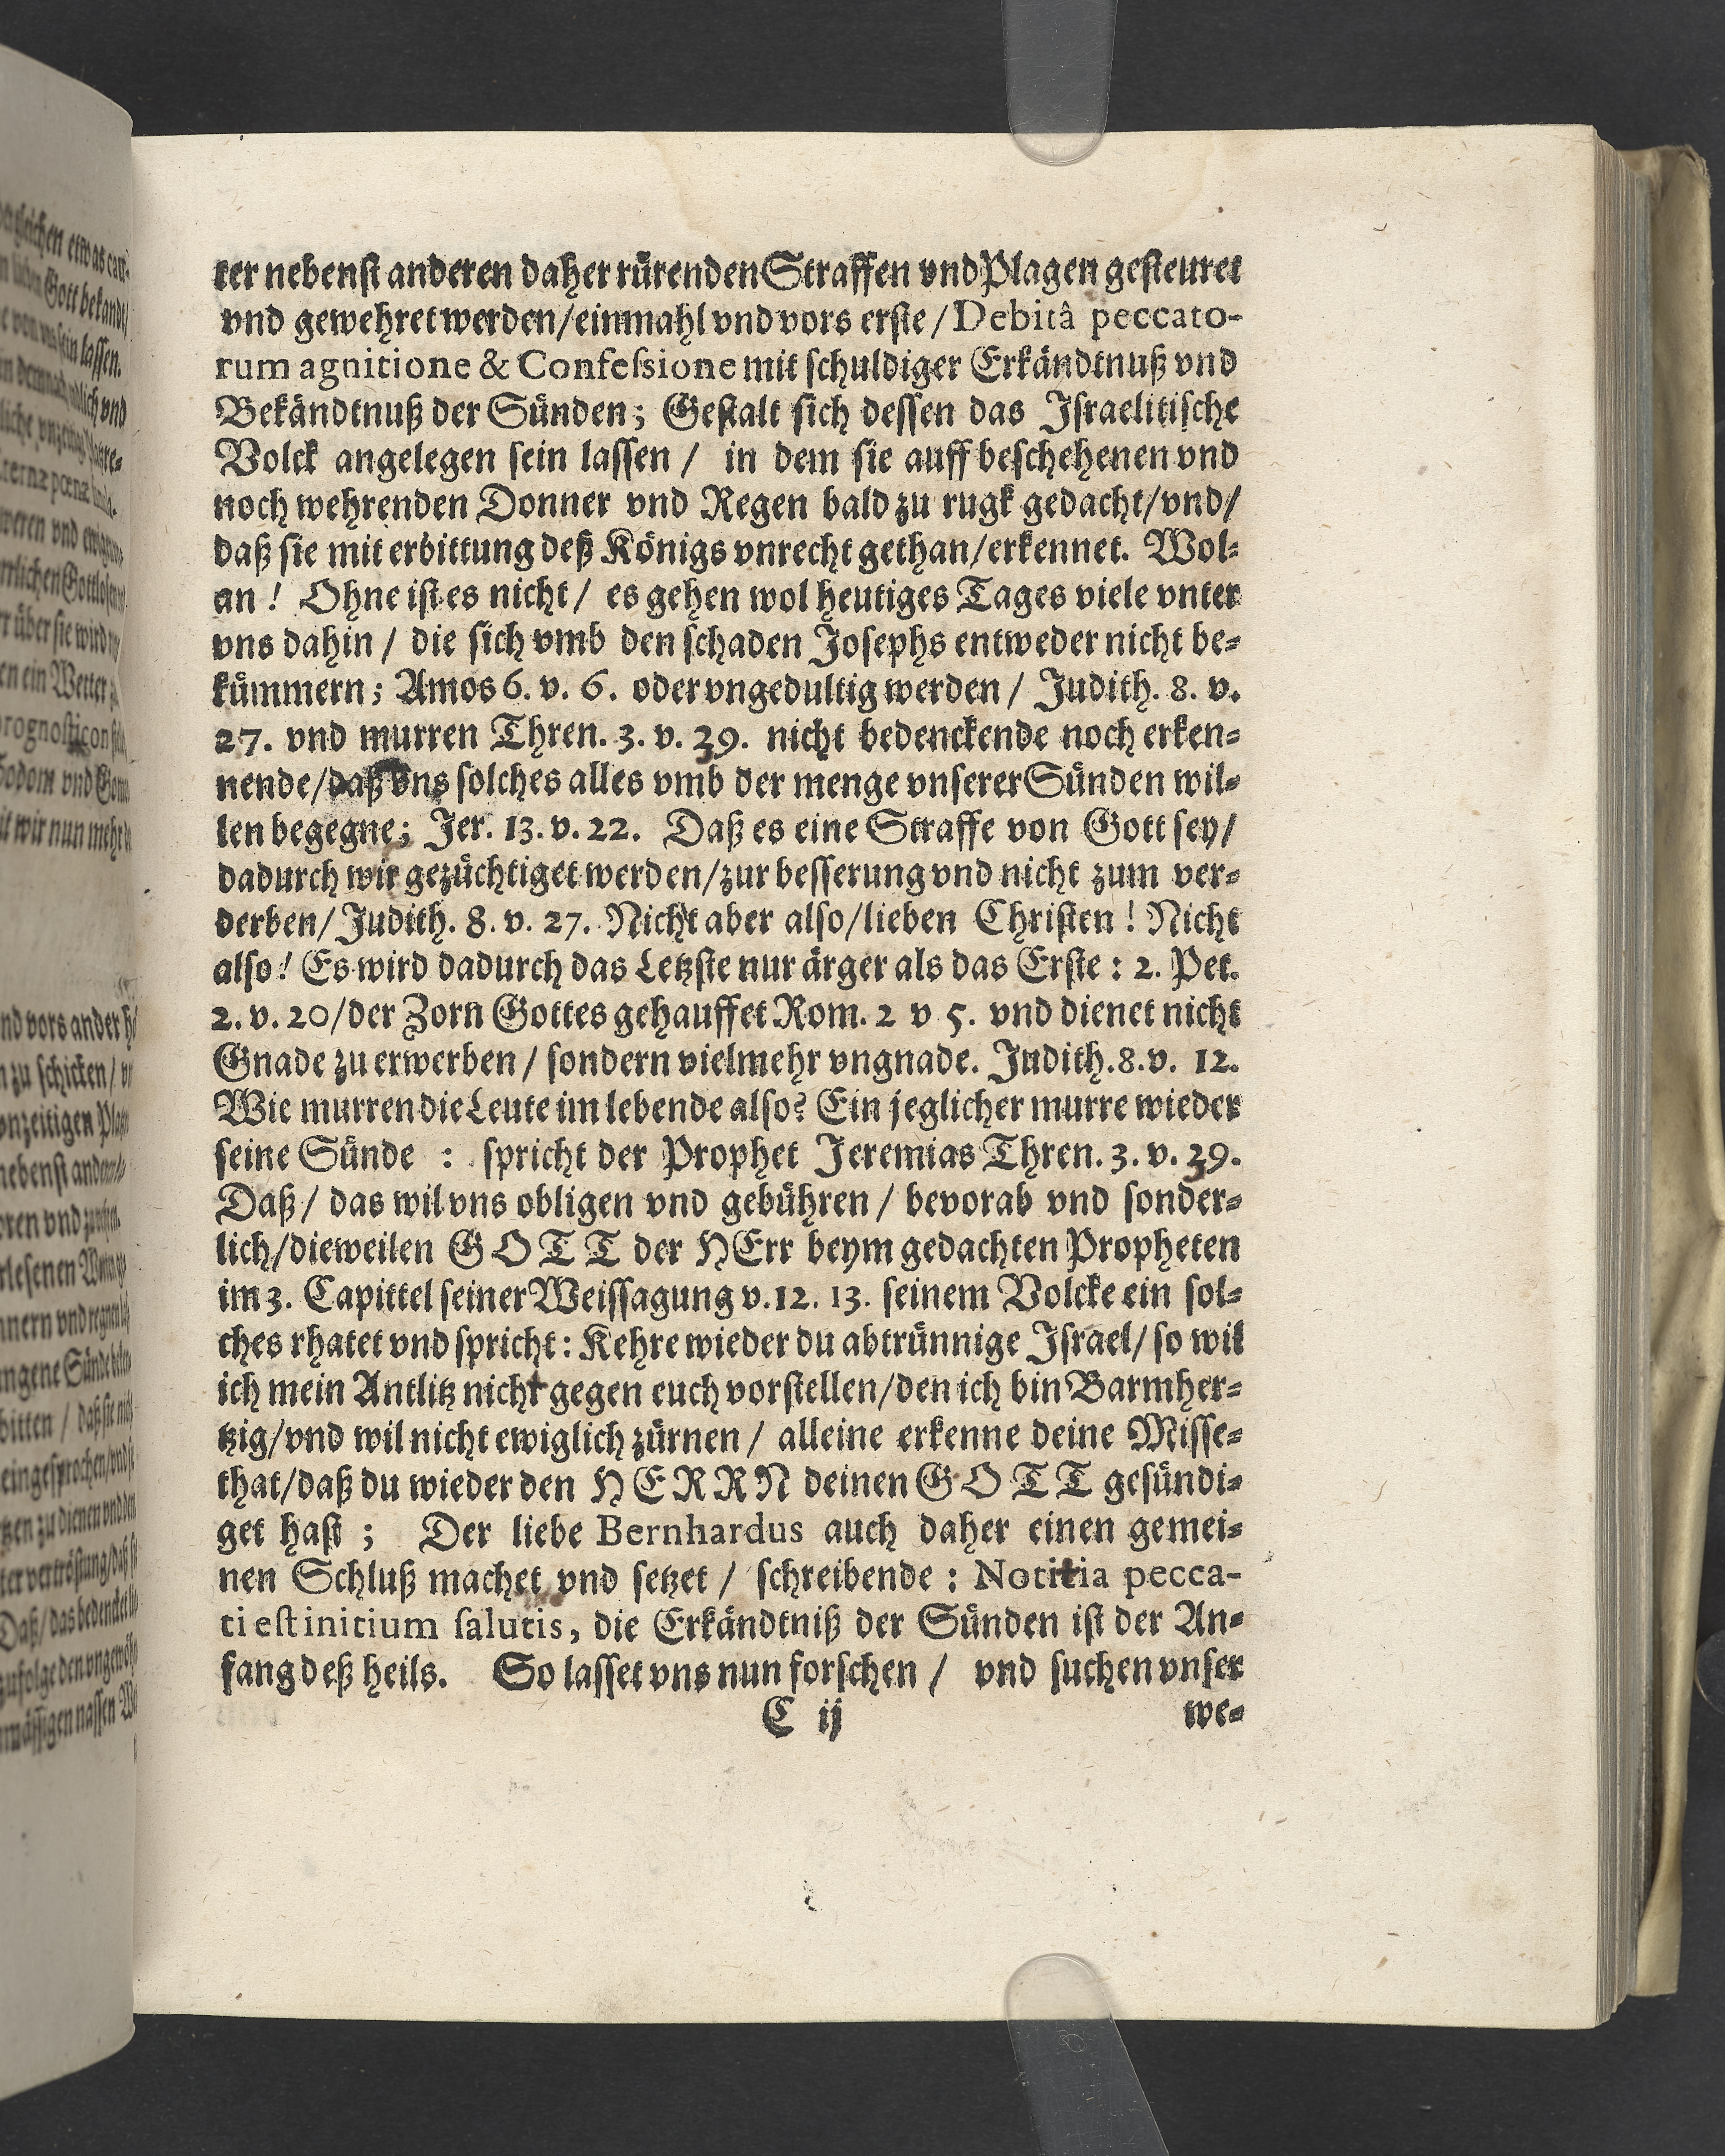 ter nebenst anderen daher rürenden Straffen vnd Plagen gesteuret
vnd gewehret werden/einmahl vnd vors erste/Debitâ peccato-
rum agnitione & Confeſsione mit schuldiger Erkändtnuß vnd
Bekändtnuß der Sünden; Gestalt sich dessen das Israelitische
Volck angelegen sein lassen / in dem sie auff beschehenen vnd
noch wehrenden Donner vnd Regen bald zu rugk gedacht/vnd/
daß sie mit erbittung deß Königs vnrecht gethan/erkennet. Wol-
an! Ohne ist es nicht / es gehen wol heutiges Tages viele vnter
vns dahin / die sich vmb den schaden Josephs entweder nicht be-
kümmern; Amos 6. v. 6. oder vngedultig werden / Judith. 8. v.
27. vnd murren Thren. 3. v. 39. nicht bedenckende noch erken-
nende/daß vns solches alles vmb der menge vnserer Sünden wil-
len begegne; Jer. 13. v. 22. Daß es eine Straffe von Gott sey/
dadurch wir gezüchtiget werden/zur besserung vnd nicht zum ver-
derben/Judith. 8. v. 27. Nicht aber also/lieben Christen! Nicht
also! Es wird dadurch das Letzste nur ärger als das Erste: 2. Pet.
2. v. 20/der Zorn Gottes gehauffet Rom. 2 v 5. vnd dienet nicht
Gnade zu erwerben / sondern vielmehr vngnade. Judith. 8. v. 12.
Wie murren die Leute im lebende also? Ein jeglicher murre wieder
seine Sünde : spricht der Prophet Jeremias Thren. 3. v. 39.
Daß / das wil vns obligen vnd gebühren / bevorab vnd sonder-
lich/dieweilen GOTT der HErr beym gedachten Propheten
im 3. Capittel seiner Weissagung v. 12. 13. seinem Volcke ein sol-
ches rhatet vnd spricht: Kehre wieder du abtrünnige Israel/so wil
ich mein Antlitz nicht gegen euch vorstellen/den ich bin Barmher-
tzig/vnd wil nicht ewiglich zürnen / alleine erkenne deine Misse-
that/daß du wieder den HERRN deinen GOTT gesündi-
get hast ; Der liebe Bernhardus auch daher einen gemei-
nen Schluß machet vnd setzet / schreibende : Notitia pecca-
ti est initium salutis, die Erkändtniß der Sünden ist der An-
fang deß heils. So lasset vns nun forschen / vnd suchen vnser
C ij we-